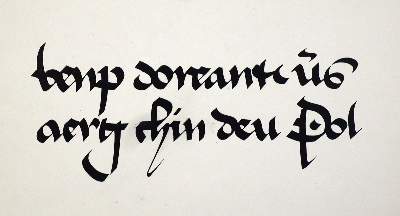 benp doreant ũs
aerg chin deu Pol